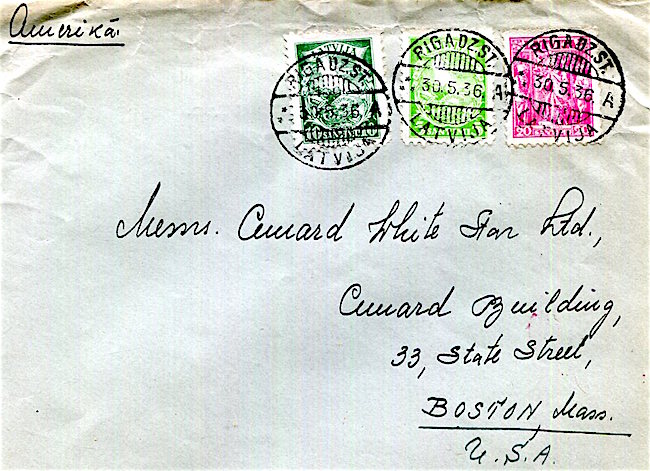 Amerikā
LATVIJA
RIGA DZ. ST.
30.5.36 A
LATVIJA
RIGA DZ. ST.
30.5.36 A
LATVIJA
RIGA DZ. ST.
30.5.36 A
LATVIJA
Messrs. Cunard White Star Ltd.,
Cunard Building,
33, State Street,
BOSTON, Mass.
U.S.A.